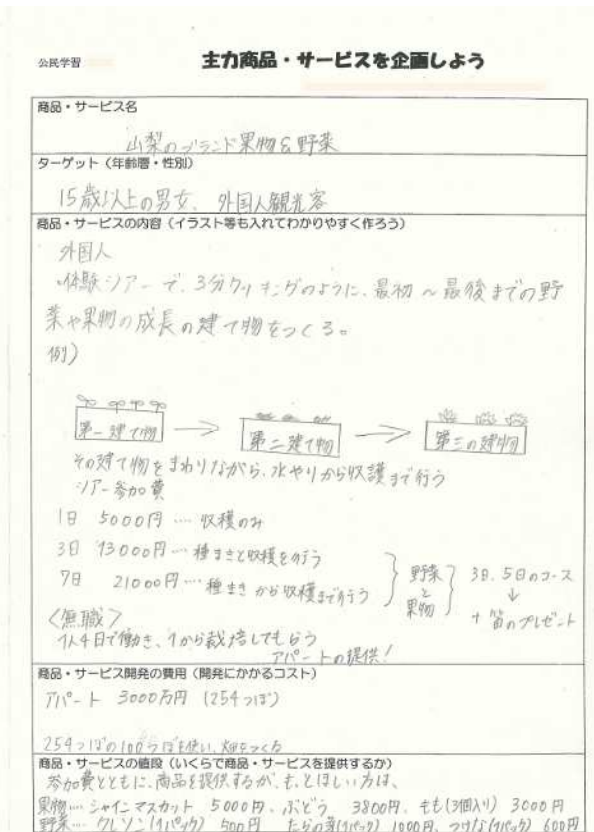 公民学習
主力商品・サービスを企画しよう
商品・サービス名
山梨のブランド果物&野菜
ターゲット(年齢層・性別)
15歳以上の男女、外国人観光客
商品・サービスの内容(イラスト等も入れてわかりやすく作ろう)
外国人
・体験ツアーで、3分クッキングのように、最初~最後までの野
菜や果物の成長の建て物をつくる。
例)
第一建て物 → 第二建て物 → 第三の建物
その建て物をまわりながら、水やりから収護まで行う
ツアー参加費
1日 5000円…収穫のみ
3日 13000円…種まきと収穫を行う
7日 21000円…種まきから収穫まで行う
野菜と果物
3日、5日のコース
↓
+ 笛のプレゼント
<無職>
1人4日で働き、1から栽培してもらう
アパートの提供!
商品・サービス開発の費用(開発にかかるコスト)
アパート 3000万円 (254つぼ)
254つぼの100つぼを使い、畑をつくる
商品・サービスの値段(いくらで商品・サービスを提供するか)
参加費とともに、商品を提供するが、もっとほしい方は、
果物…シャインマスカット 5000円、ぶどう 3800円、もも(3個入り) 3000円
野菜…クレソン(1パック) 500円 たらの芽(1パック) 1000円、つけな(1パック) 600円